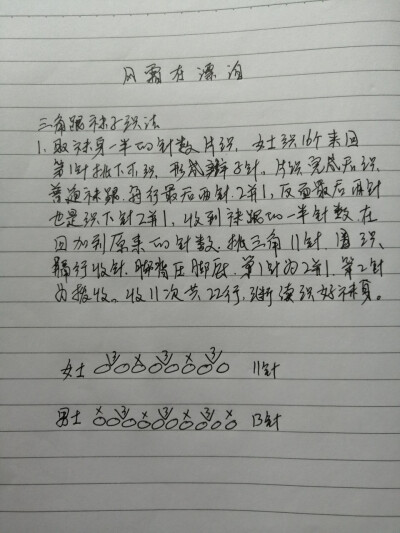 风霜在漂泊
三角跟袜子织法
1. 取袜身一半的针数片织, 女士织16个来回
第1针挑下不织, 形成辫子针。片织完然后织
普通袜跟, 每行最后两针2并1, 反面最后两针
也是织下针2并1, 收到袜跟的一半针数, 在
回加到原来的针数, 挑三角11针, 圈织,
隔行收针, 脚背压脚底, 第1针为2并1, 第2针
为拨收。收11次共22行, 继续织好袜身。
女士 3 x 3 x 3 11针
男士 x 3 x x 3 x 13针